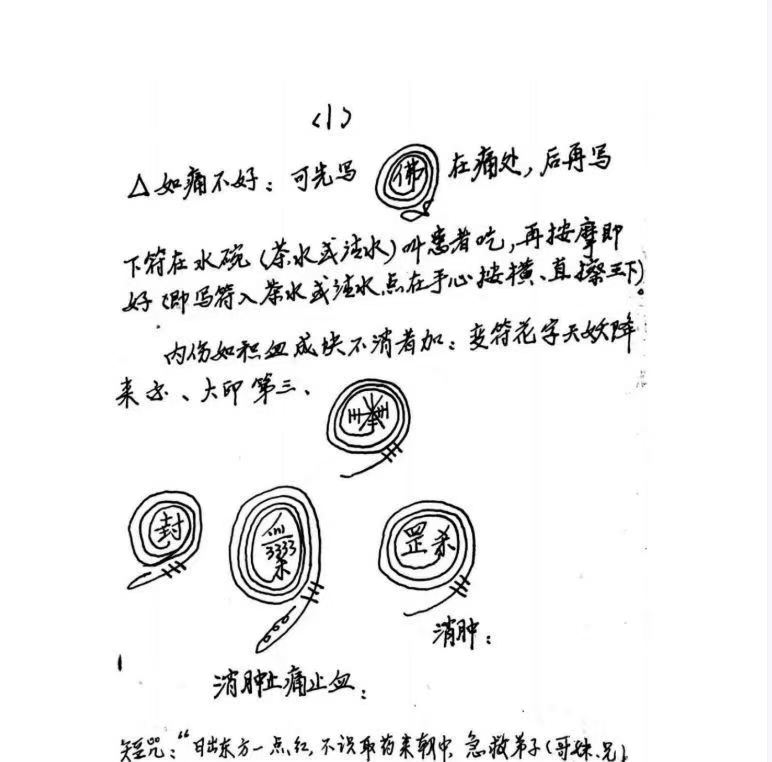 <1>
△如痛不好：可先写 佛 在痛处，后再写
下符在水碗（茶水或法水）叫患者吃，再按摩即
好（即写符入茶水或法水点在手心按横、直擦三下）。
内伤如积血成块不消者加：变符花字天妖降
来 、大印第三、
封 罡煞
消肿：
消肿止痛止血：
咒：“日出东方一点红，不说取药来朝中，急救弟子（哥妹兄）